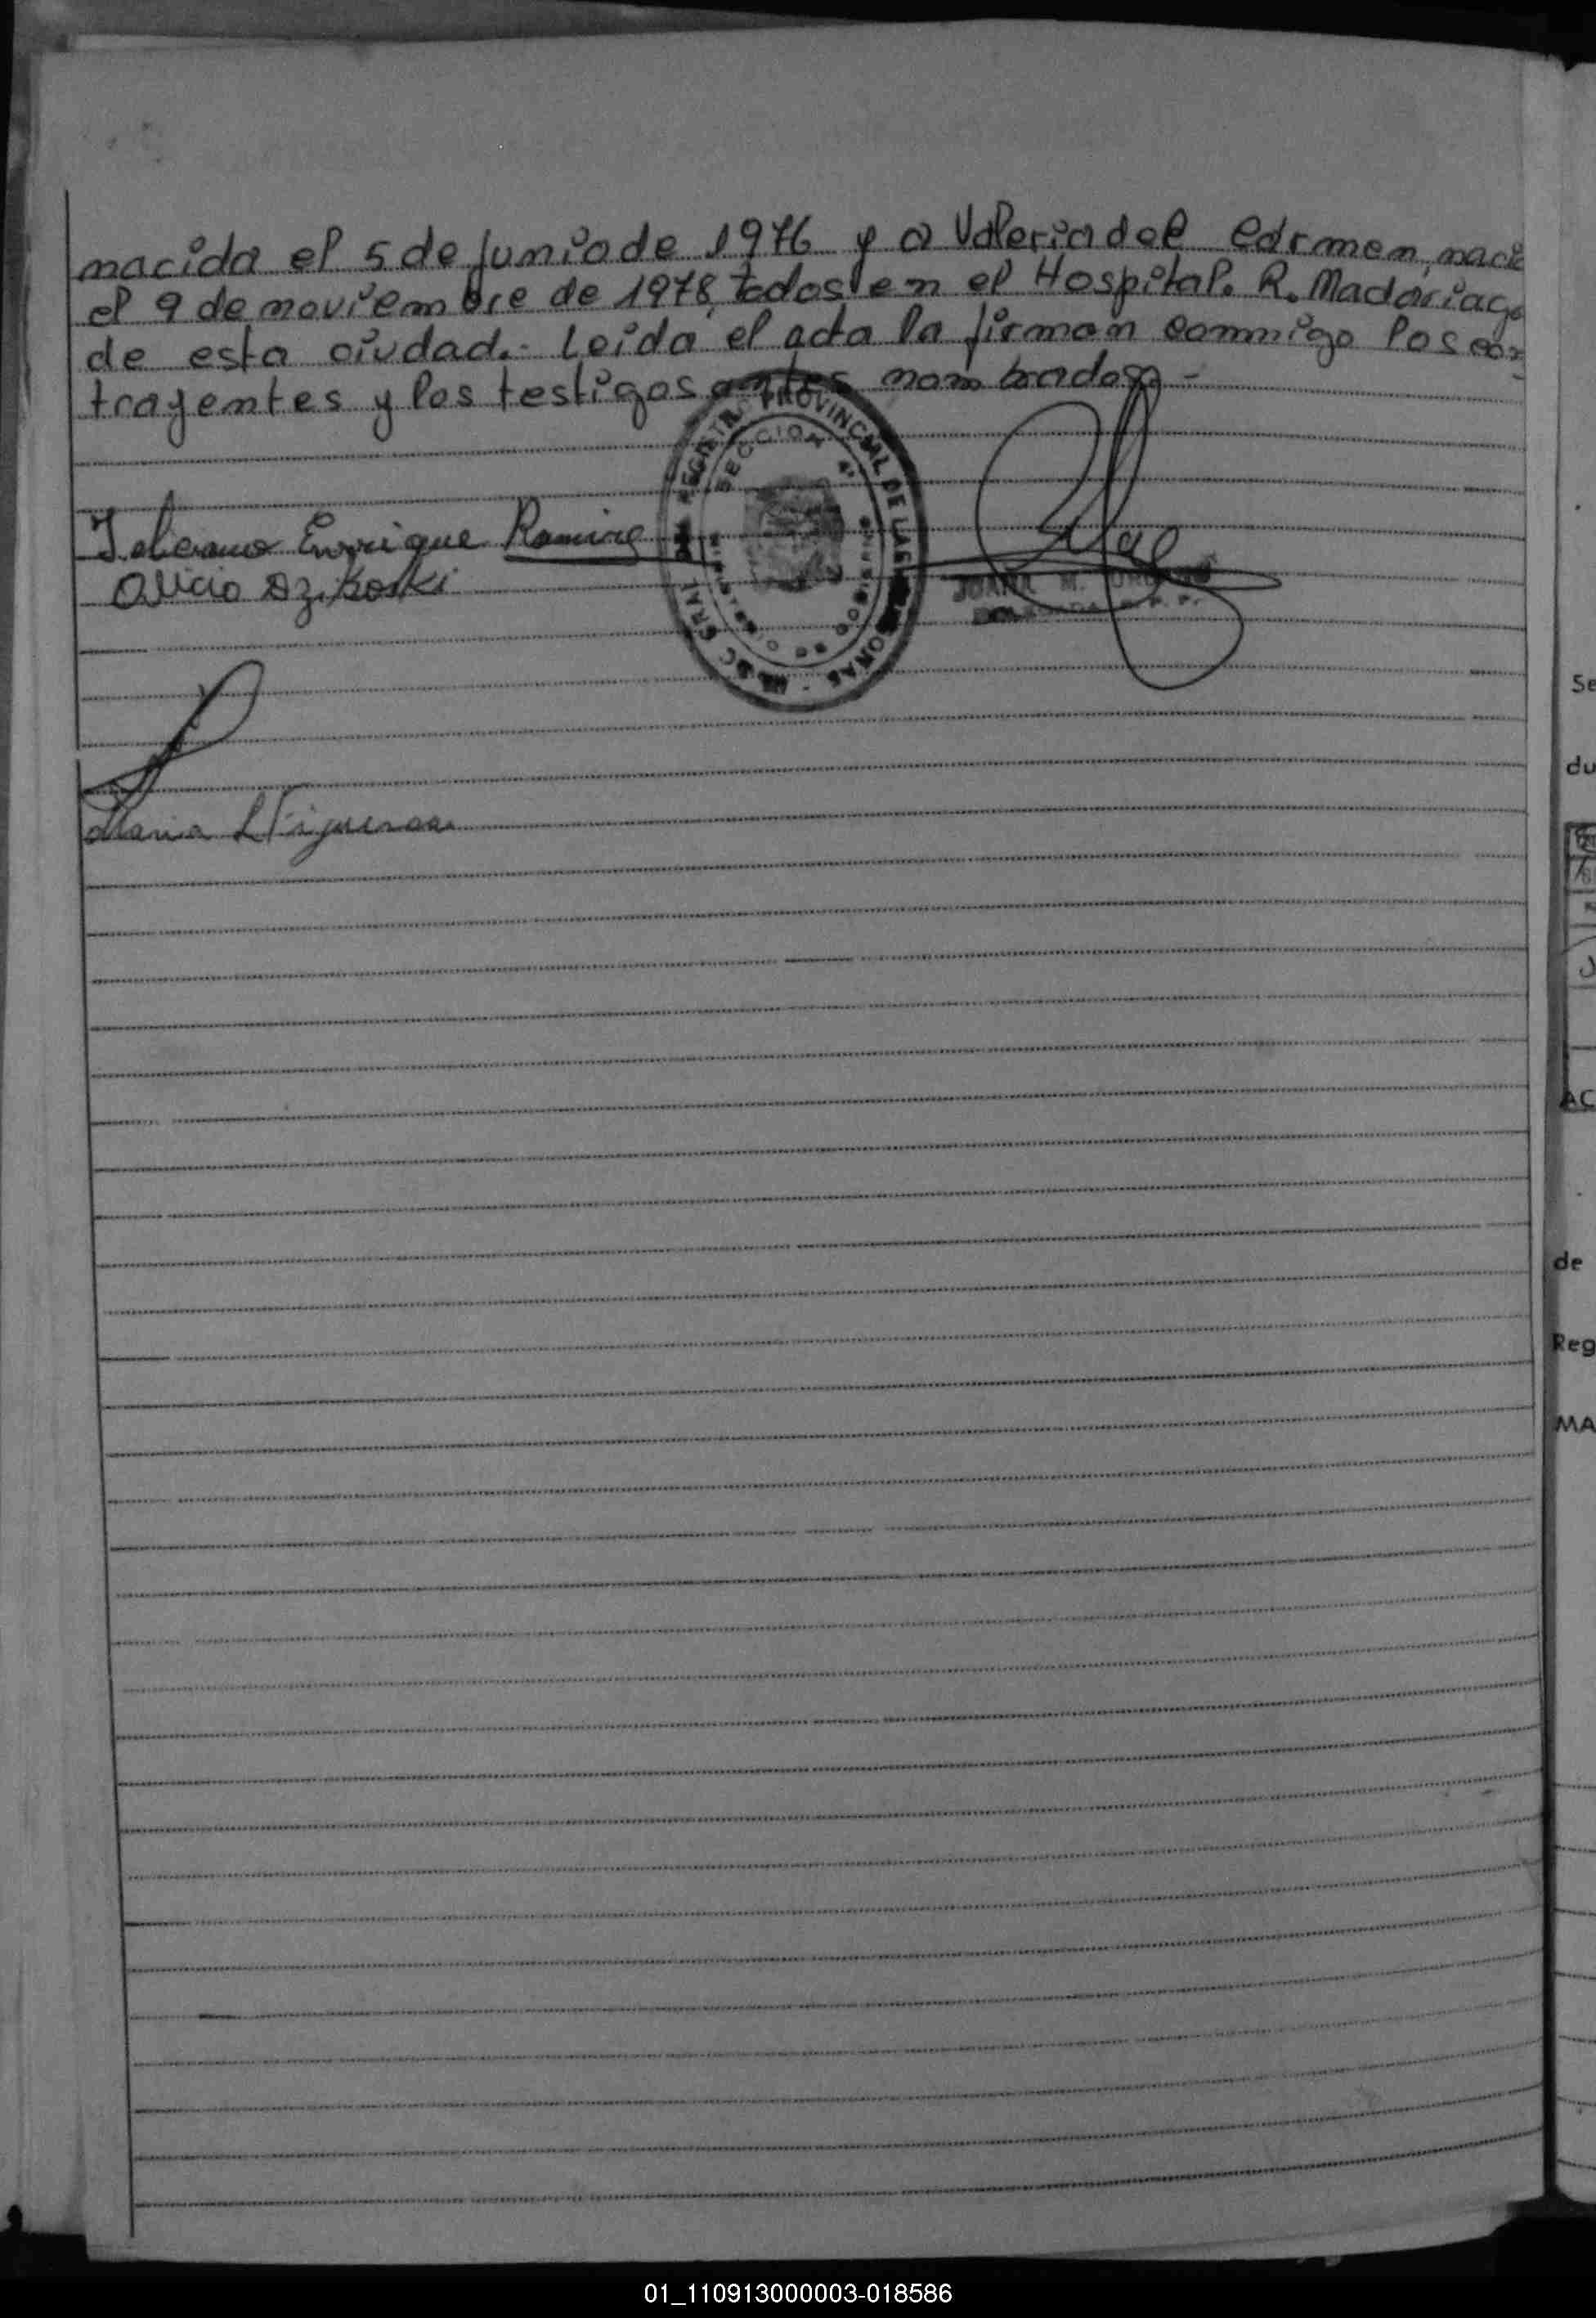 nacida el 5 de junio de 1976 y a Valeria del Carmen, naci
el 9 de noviembre de 1978, todos en el Hospital. R. Madariaga
de esta ciudad.- Leida el acta la firman conmigo los con
trayentes y los testigos antes nombrados -
Enrique Ramirez
Alicia Dzikoski
REGISTRO PROVINCIAL DE LAS PERSONAS
SECCION 4ª
JUANA M.
Maria L Figueroa
Se
du
AC
de
Reg
MA
01_110913000003-018586